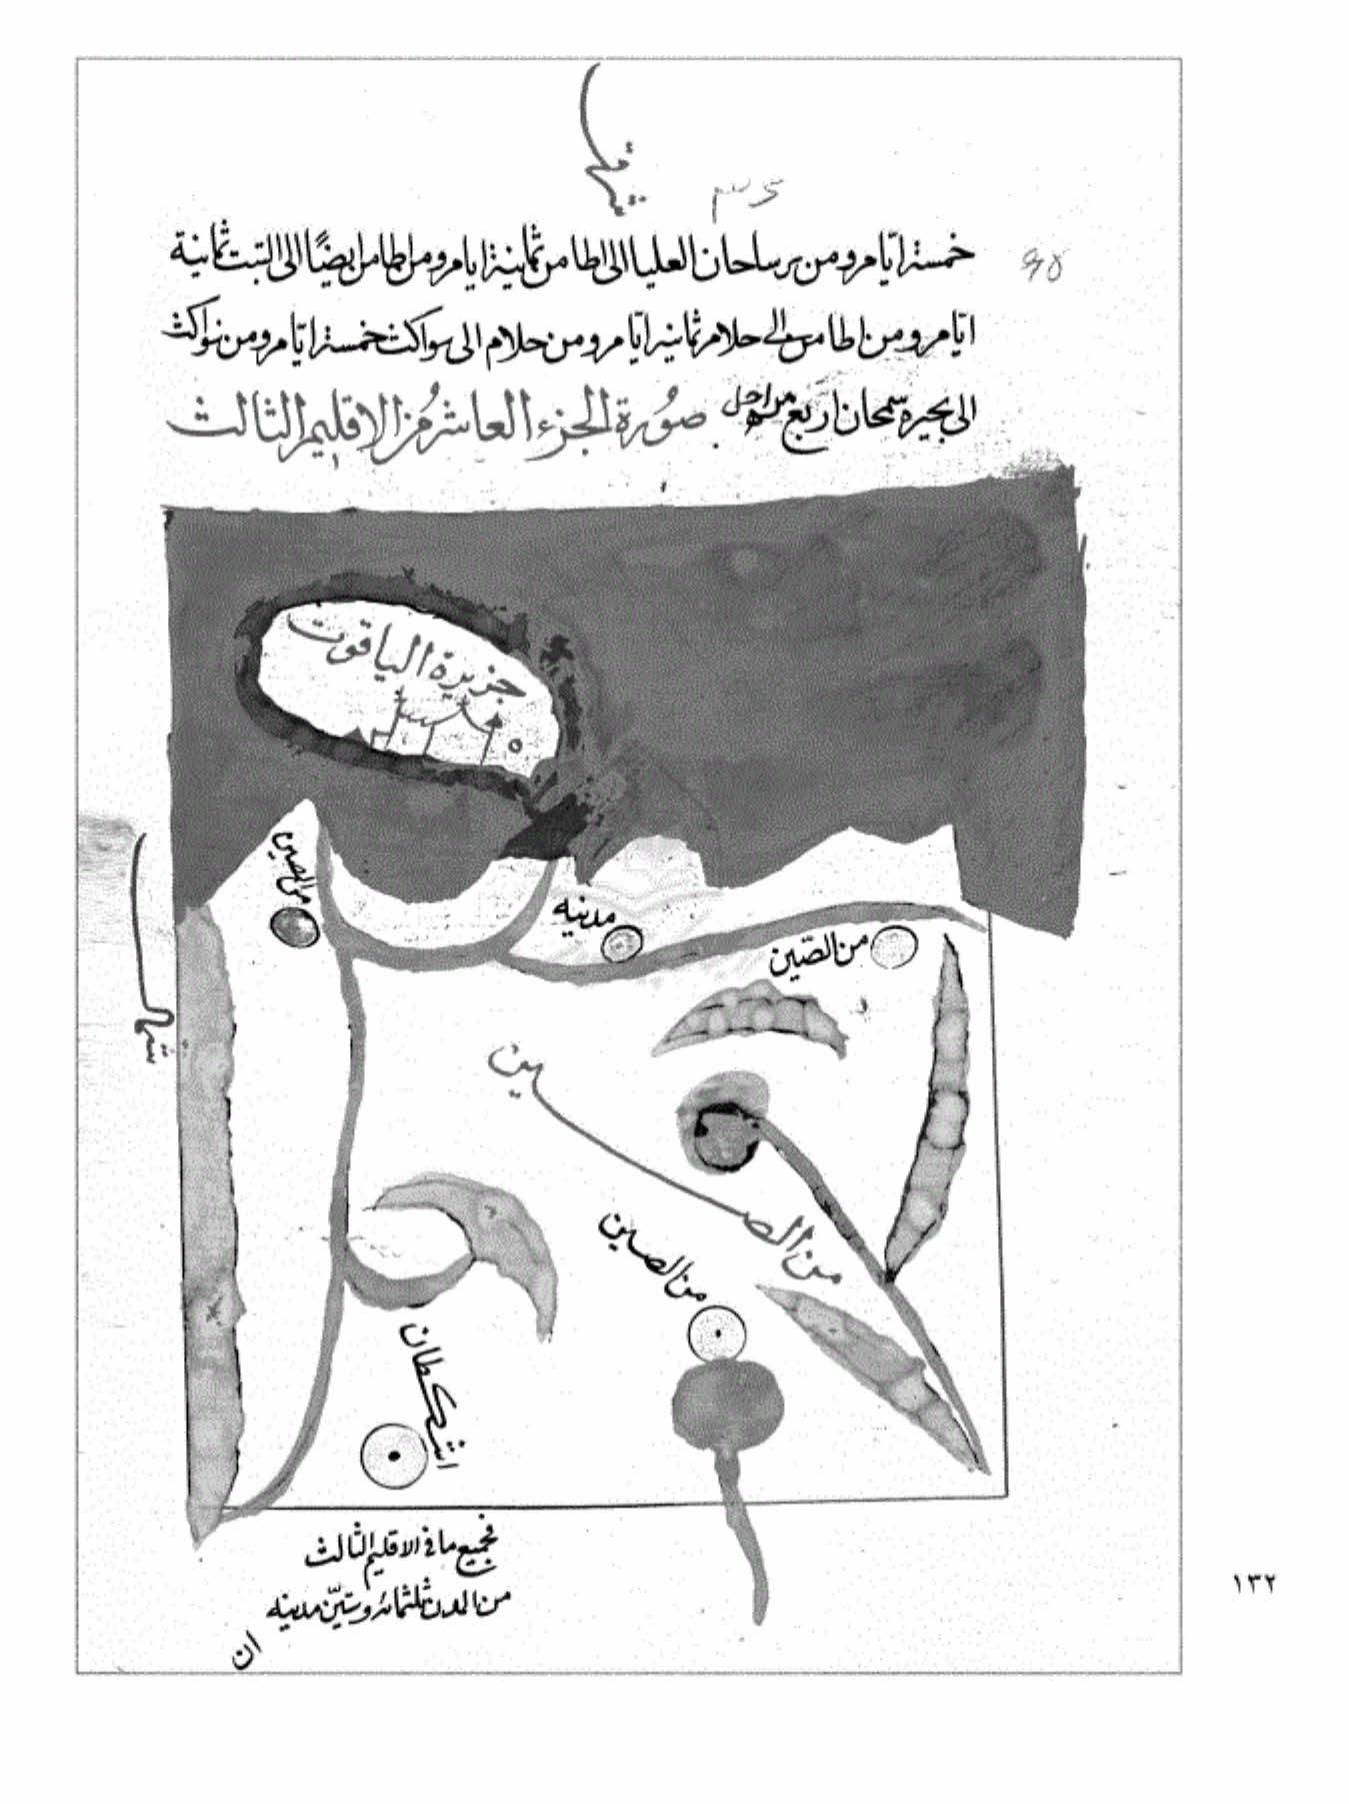 خمسة ايّام ومن برساحان العليا الى اطامن ثمانية ايام ومن اطامن ايضًا الى التبت ثمانية
ايّام ومن اطامن الى حلام ثمانية ايّام ومن حلام الى نواكث خمسة ايّام ومن نواكث
الى بحيرة سمحان اربع مراحل صورة الجزء العاشر من الاقليم الثالث
جزيرة الياقوت
من الصين
مدينه
من الصّين
شمال
من الصين
من الصين
اشكطان
فجميع ما في الاقليم الثالث
من المدن ثلثمائة وستّين مدينه
ان
١٣٢